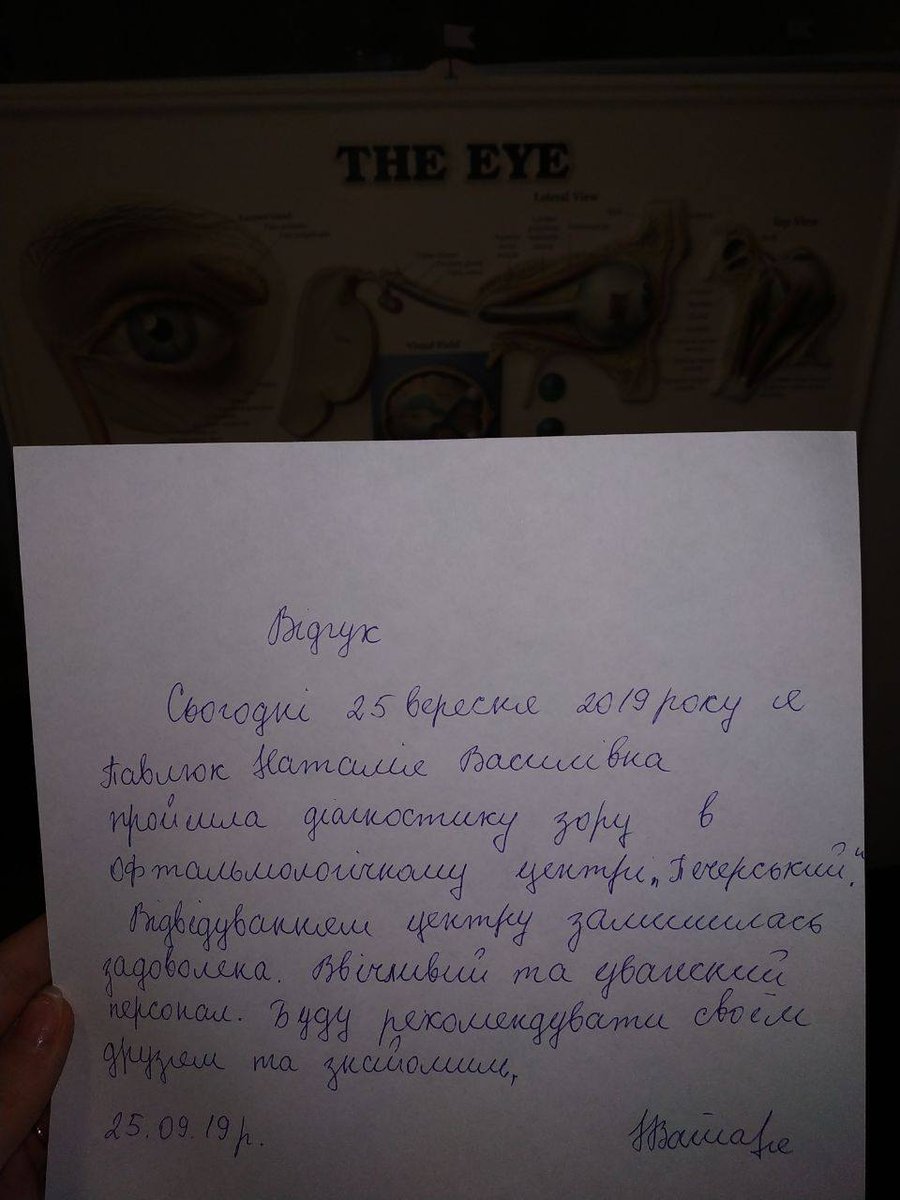 THE EYE
Lateral View
Top View
Visual Field
Відгук
Сьогодні 25 вересня 2019 року я
Павлюк Наталія Василівна
пройшла діагностику зору в
офтальмологічному центрі „Печерський".
Відвідуванням центру залишилась
задоволена. Ввічливий та уважний
персонал. Буду рекомендувати своїм
друзям та знайомим.
25.09.19р.